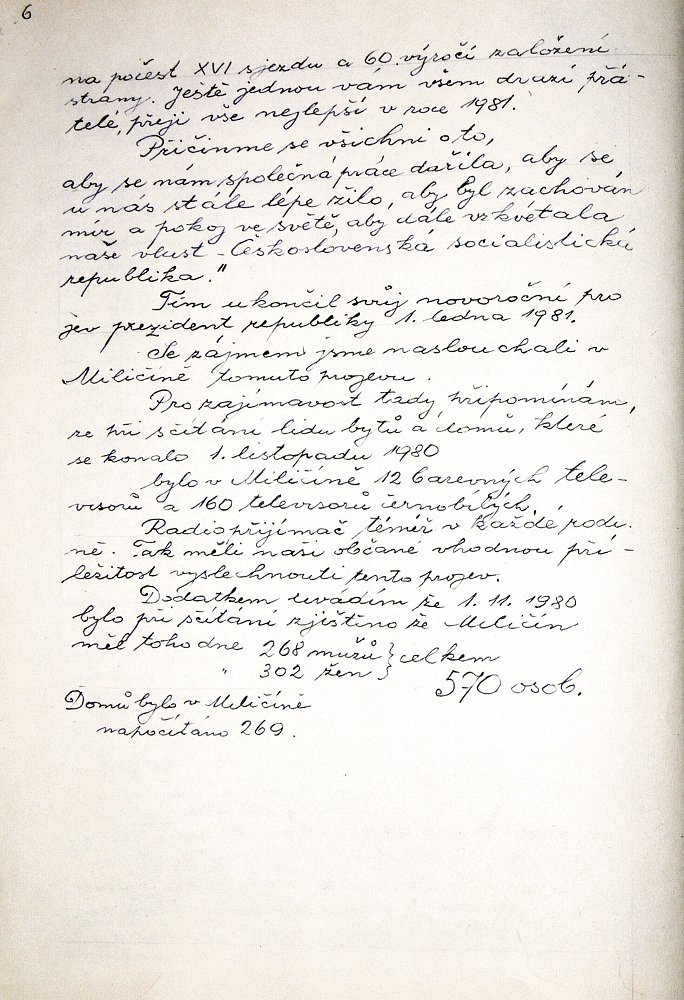 6
na počest XVI sjezdu a 60. výročí založení
strany. Ještě jednou vám všem druzí přá-
telé, přeji vše nejlepší v roce 1981.
Přičiňme se všichni o to,
aby se nám společná práce dařila, aby se
u nás stále lépe žilo, aby byl zachován
mír a pokoj ve světě, aby dále vzkvétala
naše vlast - Československá socialistická
republika."
Tím ukončil svůj novoroční pro
jev prezident republiky 1. ledna 1981.
Se zájmem jsme naslouchali v
Miličíně tomuto projevu.
Pro zajímavost tady připomínám,
že při sčítání lidu bytů a domů, které
se konalo 1. listopadu 1980
bylo v Miličíně 12 barevných tele-
visorů a 160 televisorů černobílých.
Radiopřijímač téměř v každé rodi-
ně. Tak měli naši občané vhodnou pří-
ležitost vyslechnouti tento projev.
Dodatkem uvádím že 1. 11. 1980
bylo při sčítání zjištěno že Miličín
měl toho dne 268 mužů } celkem
" 302 žen } 570 osob.
Domů bylo v Miličíně
napočítáno 269.